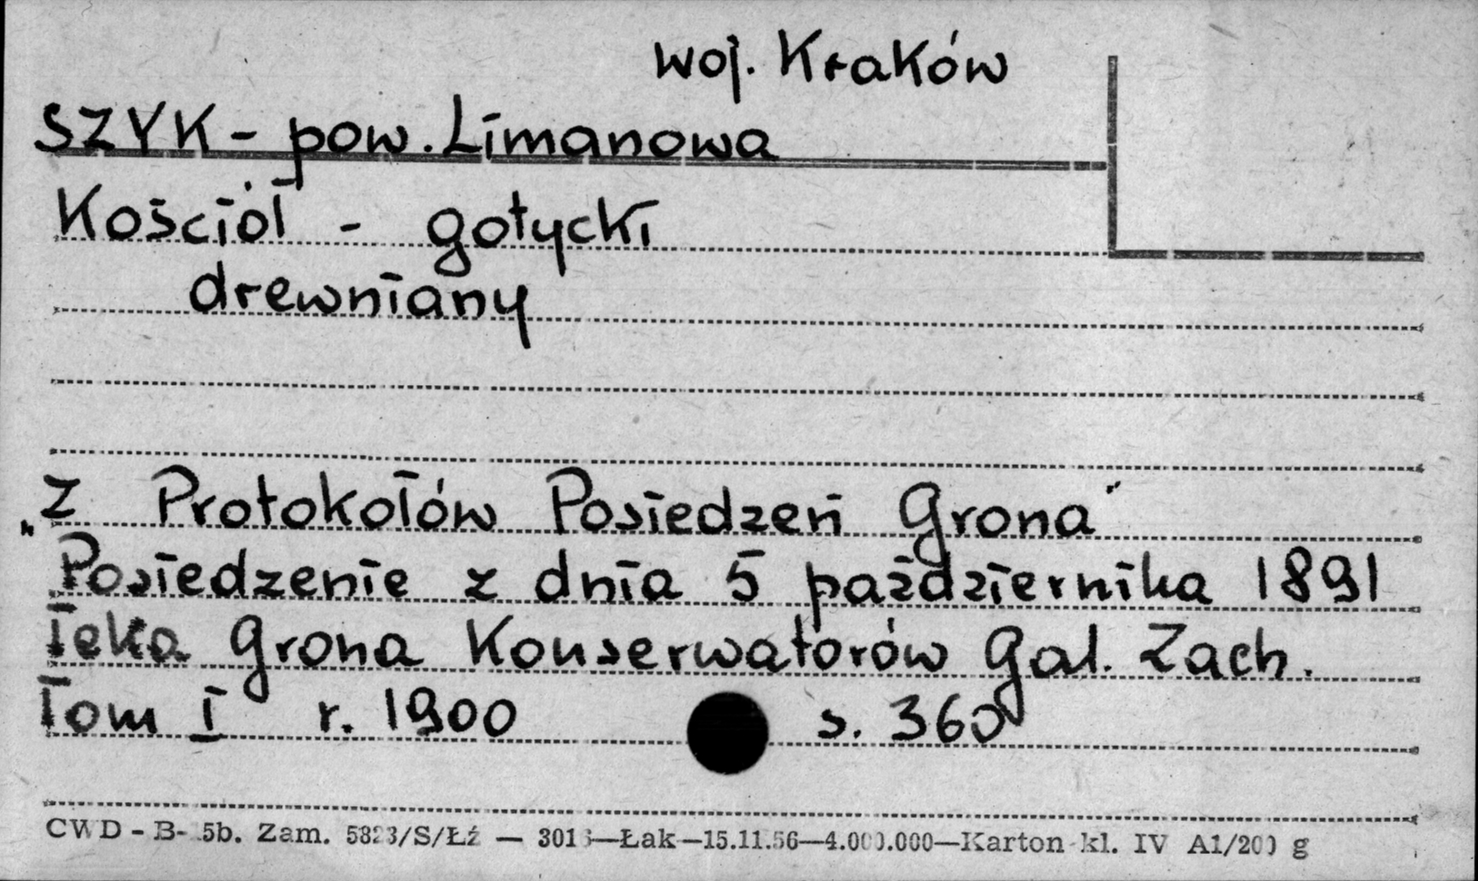 woj. Kraków
SZYK - pow. Limanowa
Kościół - gotycki
drewniany
„Z Protokołów Posiedzeń Grona"
Posiedzenie z dnia 5 października 1891
Teka Grona Konserwatorów Gal. Zach.
Tom I r. 1900 s. 360
CWD - B- 5b. Zam. 5823/S/Łź — 3013—Łak—15.11.56—4.000.000—Karton kl. IV A1/200 g